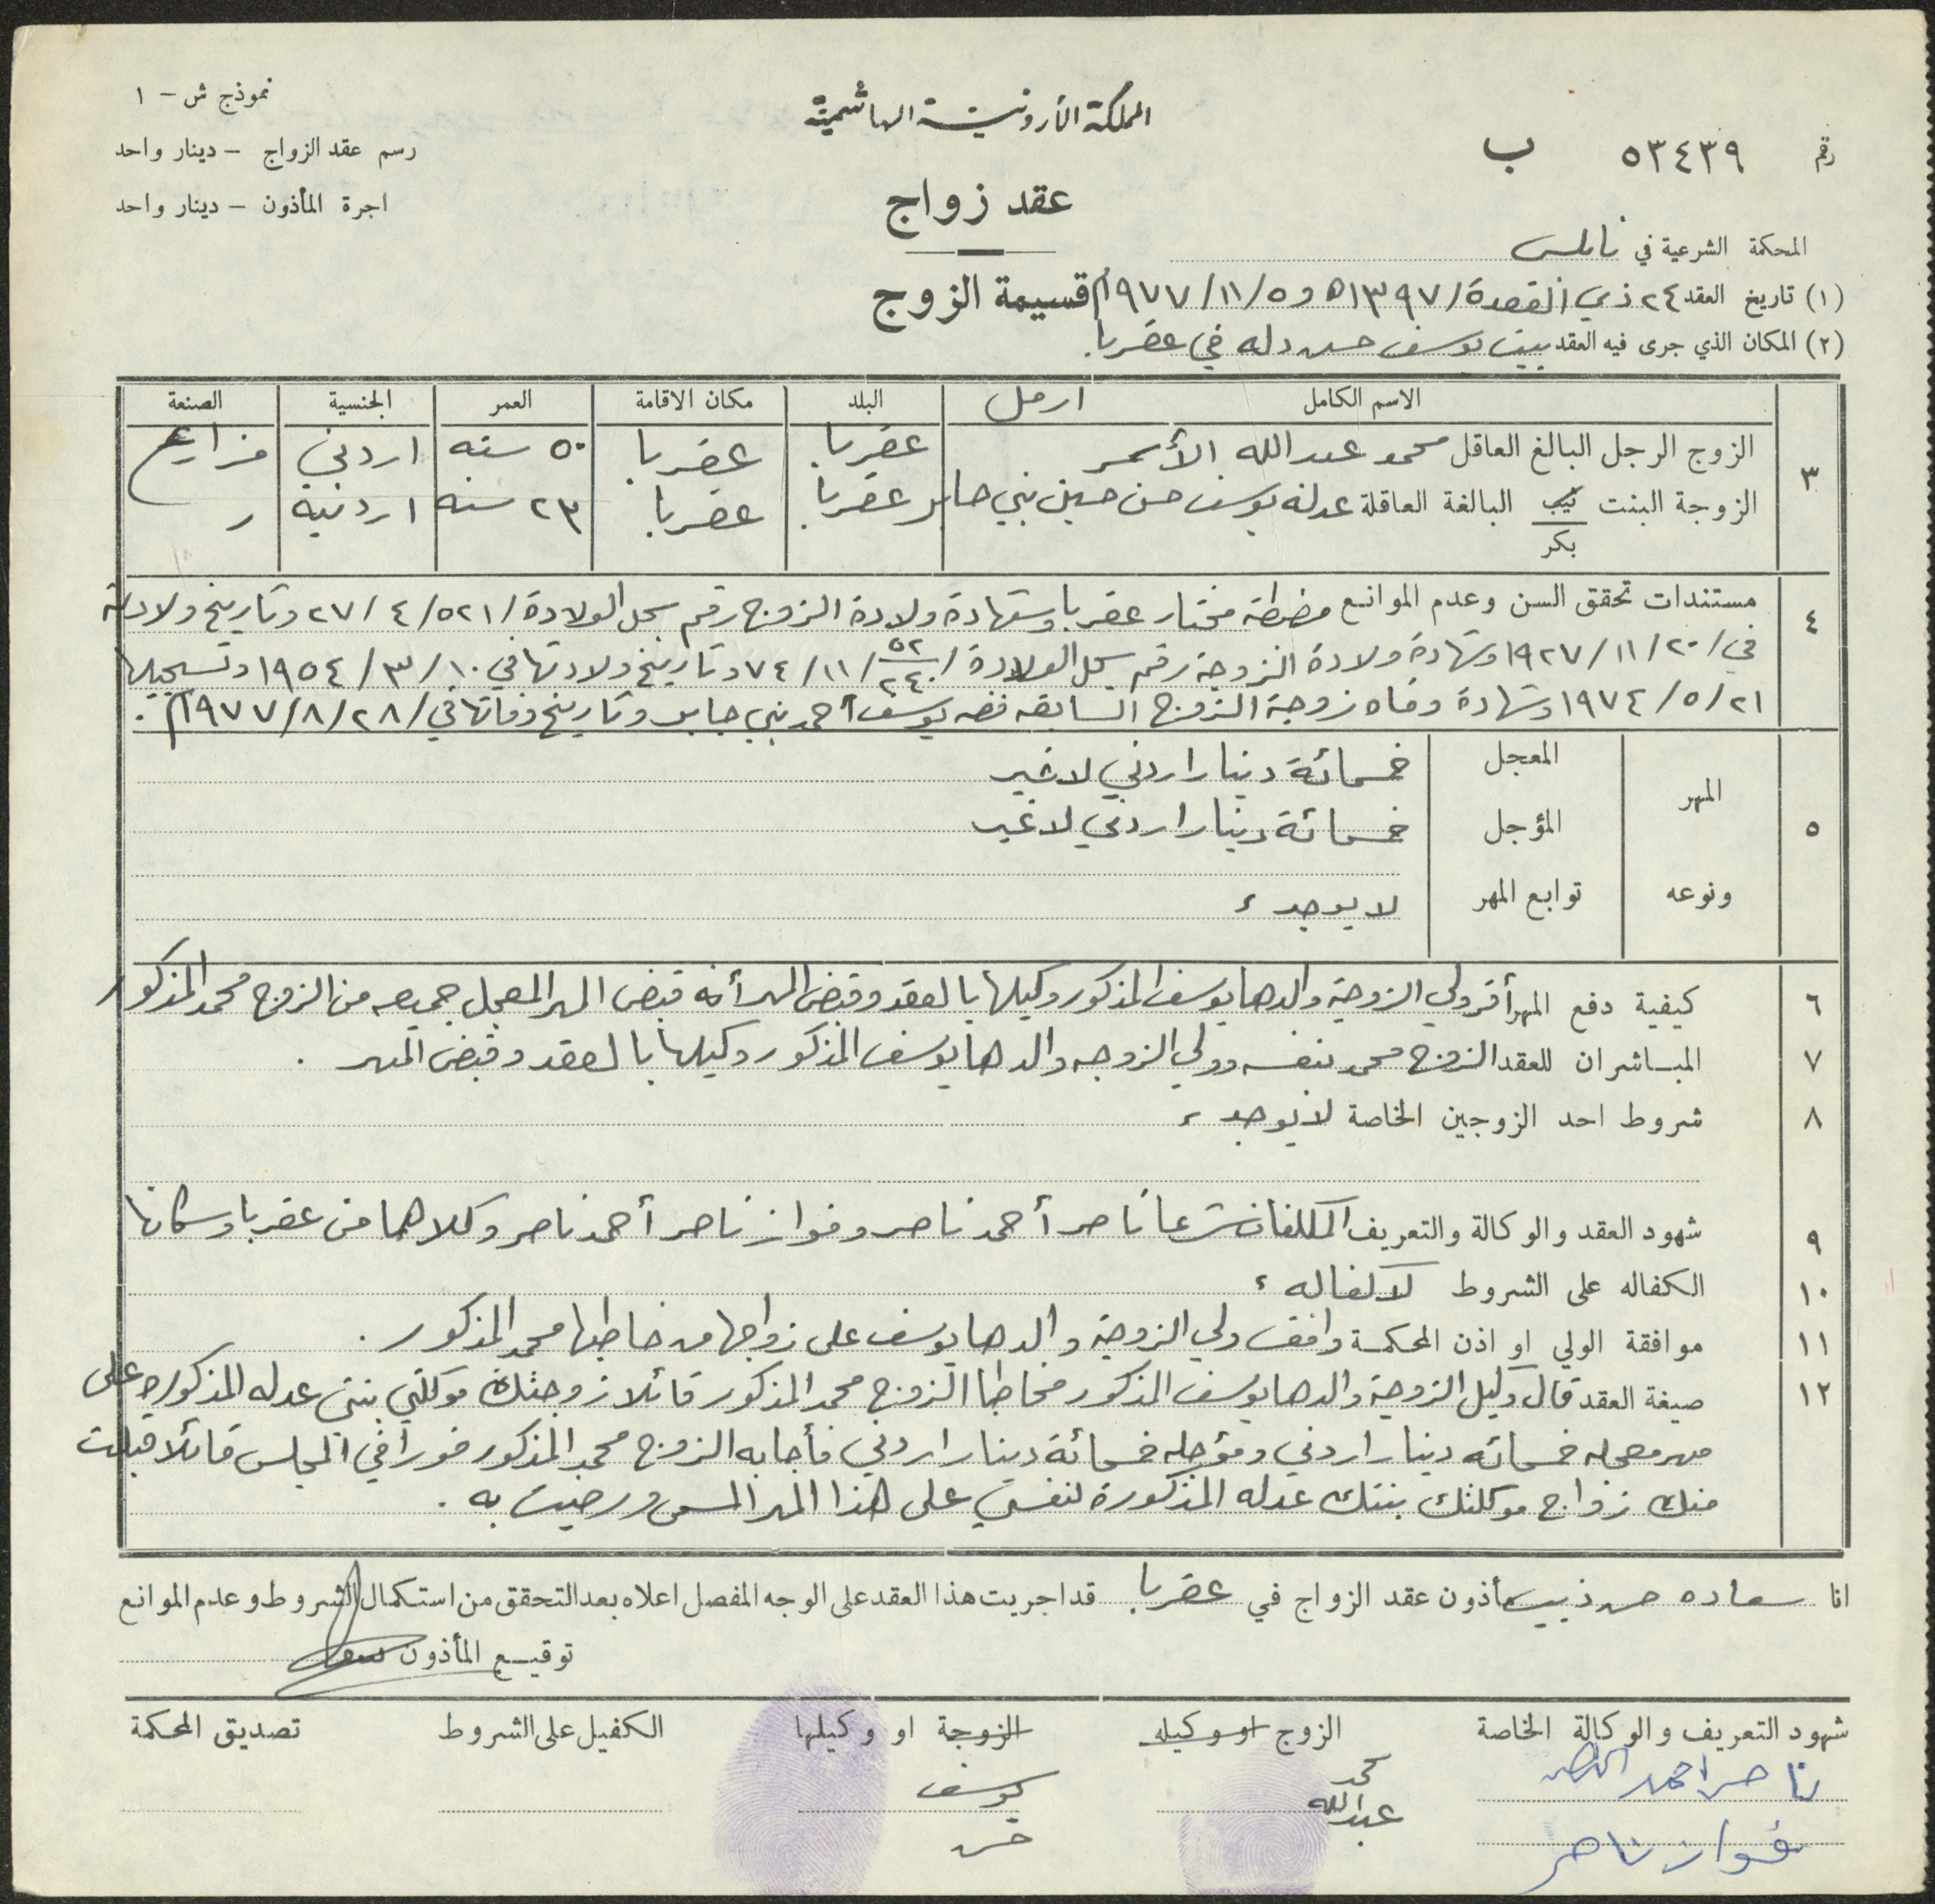 نموذج ش - ١
رسم عقد الزواج - دينار واحد
اجرة المأذون - دينار واحد
المملكة الأردنية الهاشمية
عقد زواج
قسيمة الزوج
رقم ٥٣٤٣٩ ب
المحكمة الشرعية في نابلس
(١) تاريخ العقد ٢٤ ذي القعدة/١٣٩٧ه و ٥/١١/٩٧٧م
(٢) المكان الذي جرى فيه العقد بيت يوسف حسن دله في عقربا.
الاسم الكامل ارمل البلد مكان الاقامة العمر الجنسية الصنعة
٣ الزوج الرجل البالغ العاقل محمد عبدالله الأسمر عقربا. عقربا. ٥٠ سنه اردني مزارع
الزوجة البنت ثيب البالغة العاقلة عدله يوسف حسن حسين بني جابر عقربا. عقربا. ٢٣ سنه اردنيه
بكر
٤ مستندات تحقق السن وعدم الموانع مضبطة مختار عقربا وشهادة ولادة الزوج رقم سجل الولادة/٥٢١/٤/٢٧ وتاريخ ولادته
في/٢٠/١١/١٩٢٧ وشهادة ولادة الزوجة رقم سجل الولادة/٥٢/٢٤٠/١١/٧٤ وتاريخ ولادتها في ١٠/٣/١٩٥٤ وتسجيلها
٢١/٥/١٩٧٤ وشهادة وفاه زوجة الزوج السابقه فضه يوسف أحمد بني جابر وتاريخ وفاتها في/٢٨/٨/٩٧٧م.
٥ المهر ونوعه
المعجل خمسمائة دينار اردني لا غير
المؤجل خمسمائة دينار اردني لا غير
توابع المهر لا يوجد ء
٦ كيفية دفع المهر أقر ولي الزوجة والدها يوسف المذكور وكيلها بالعقد وقبض المهر أنه قبض المهر المعجل جميعه من الزوج محمد المذكور
٧ المباشران للعقد الزوج محمد بنفسه وولي الزوجه والدها يوسف المذكور وكيلها بالعقد وقبض المهر.
٨ شروط احد الزوجين الخاصة لا يوجد ء
٩ شهود العقد والوكالة والتعريف المكلفان شرعاً ناصر أحمد ناصر وفواز ناصر أحمد ناصر وكلاهما من عقربا وسكانها
١٠ الكفاله على الشروط لا كفاله ء
١١ موافقة الولي او اذن المحكمة وافق ولي الزوجة والدها يوسف على زواجها من خاطبها محمد المذكور.
١٢ صيغة العقد قال وكيل الزوجة والدها يوسف المذكور مخاطبا الزوج محمد المذكور قائلا زوجتك موكلتي بنتي عدله المذكوره على
مهر معجله خمسمائه دينار اردني ومؤجله خمسمائة دينار اردني فأجابه الزوج محمد المذكور فورا في المجلس قائلا قبلت
منك زواج موكلتك بنتك عدله المذكورة لنفسي على هذا المهر المسمى ورضيت به.
انا سعاده حسن ذيب مأذون عقد الزواج في عقربا. قد اجريت هذا العقد على الوجه المفصل اعلاه بعد التحقق من استكمال الشروط وعدم الموانع
توقيع المأذون
شهود التعريف والوكالة الخاصة الزوج او وكيله الزوجة او وكيلها الكفيل على الشروط تصديق المحكمة
ناصر احمد الناصر محمد عبدالله يوسف حسن
فواز ناصر